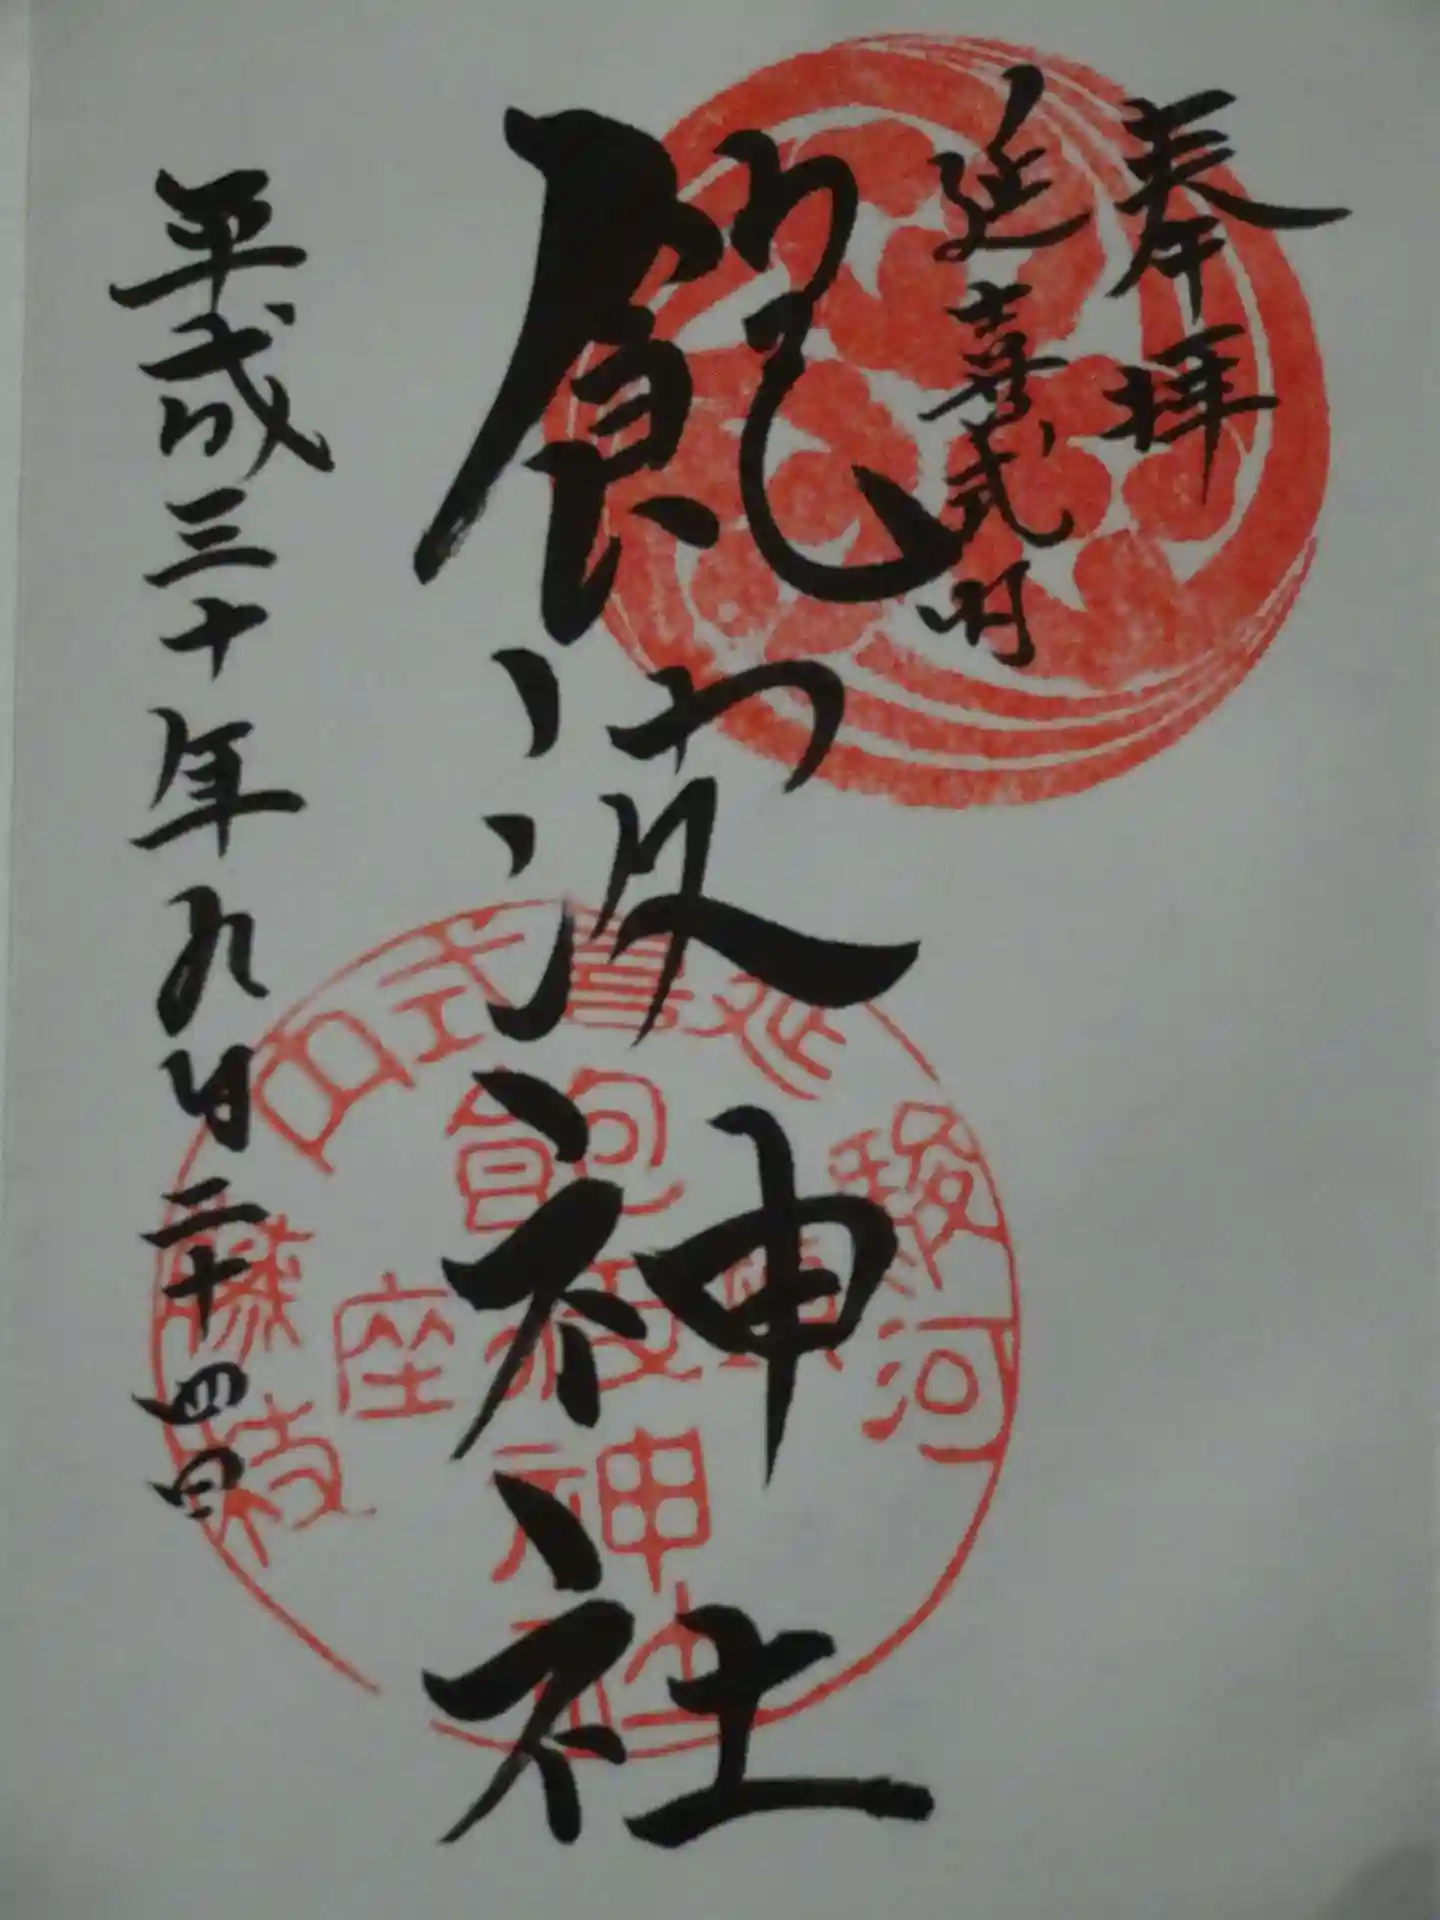 奉拝
延喜式内
飽波神社
平成三十年九月二十四日
延喜式内
駿河
藤枝
飽波神社
座